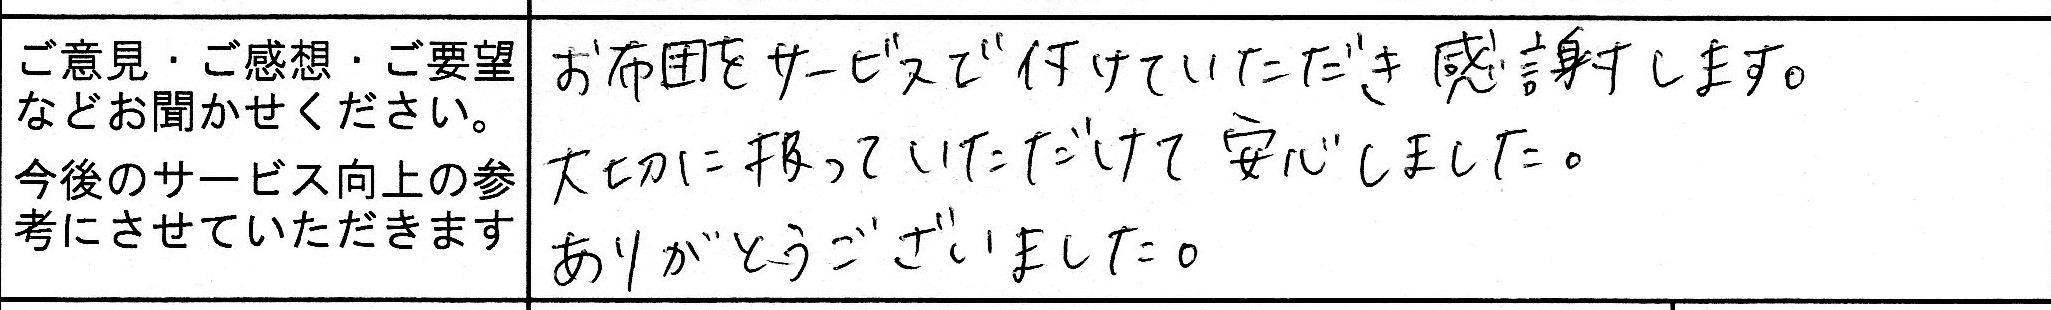 ご意見・ご感想・ご要望
などお聞かせください。
今後のサービス向上の参
考にさせていただきます
お布団をサービスで付けていただき感謝します。
大切に扱っていただけて安心しました。
ありがとうございました。